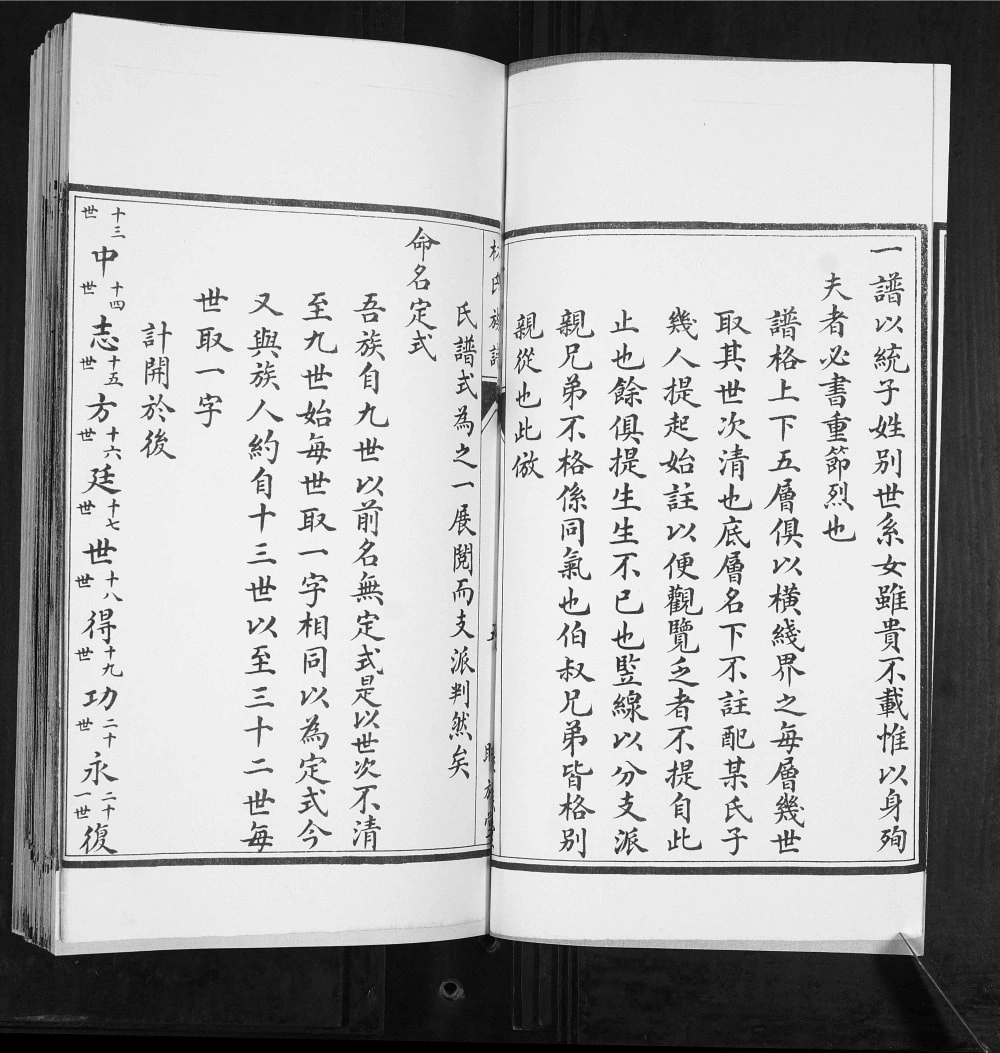 一譜以統子姓別世系女雖貴不載惟以身殉
夫者必書重節烈也
譜格上下五層俱以橫綫界之每層幾世
取其世次清也底層名下不註配某氏子
幾人提起始註以便觀覽乏者不提自此
止也餘俱提生生不已也監線以分支派
親兄弟不格係同氣也伯叔兄弟皆格別
親從也此倣
氏族譜
氏譜式為之一展閱而支派判然矣
命名定式
吾族自九世以前名無定式是以世次不清
至九世始每世取一字相同以為定式今
又與族人約自十三世以至三十二世每
世取一字
計開於後
十三世中十四世志十五世方十六世廷十七世世十八世得十九世功二十世永二十一世復